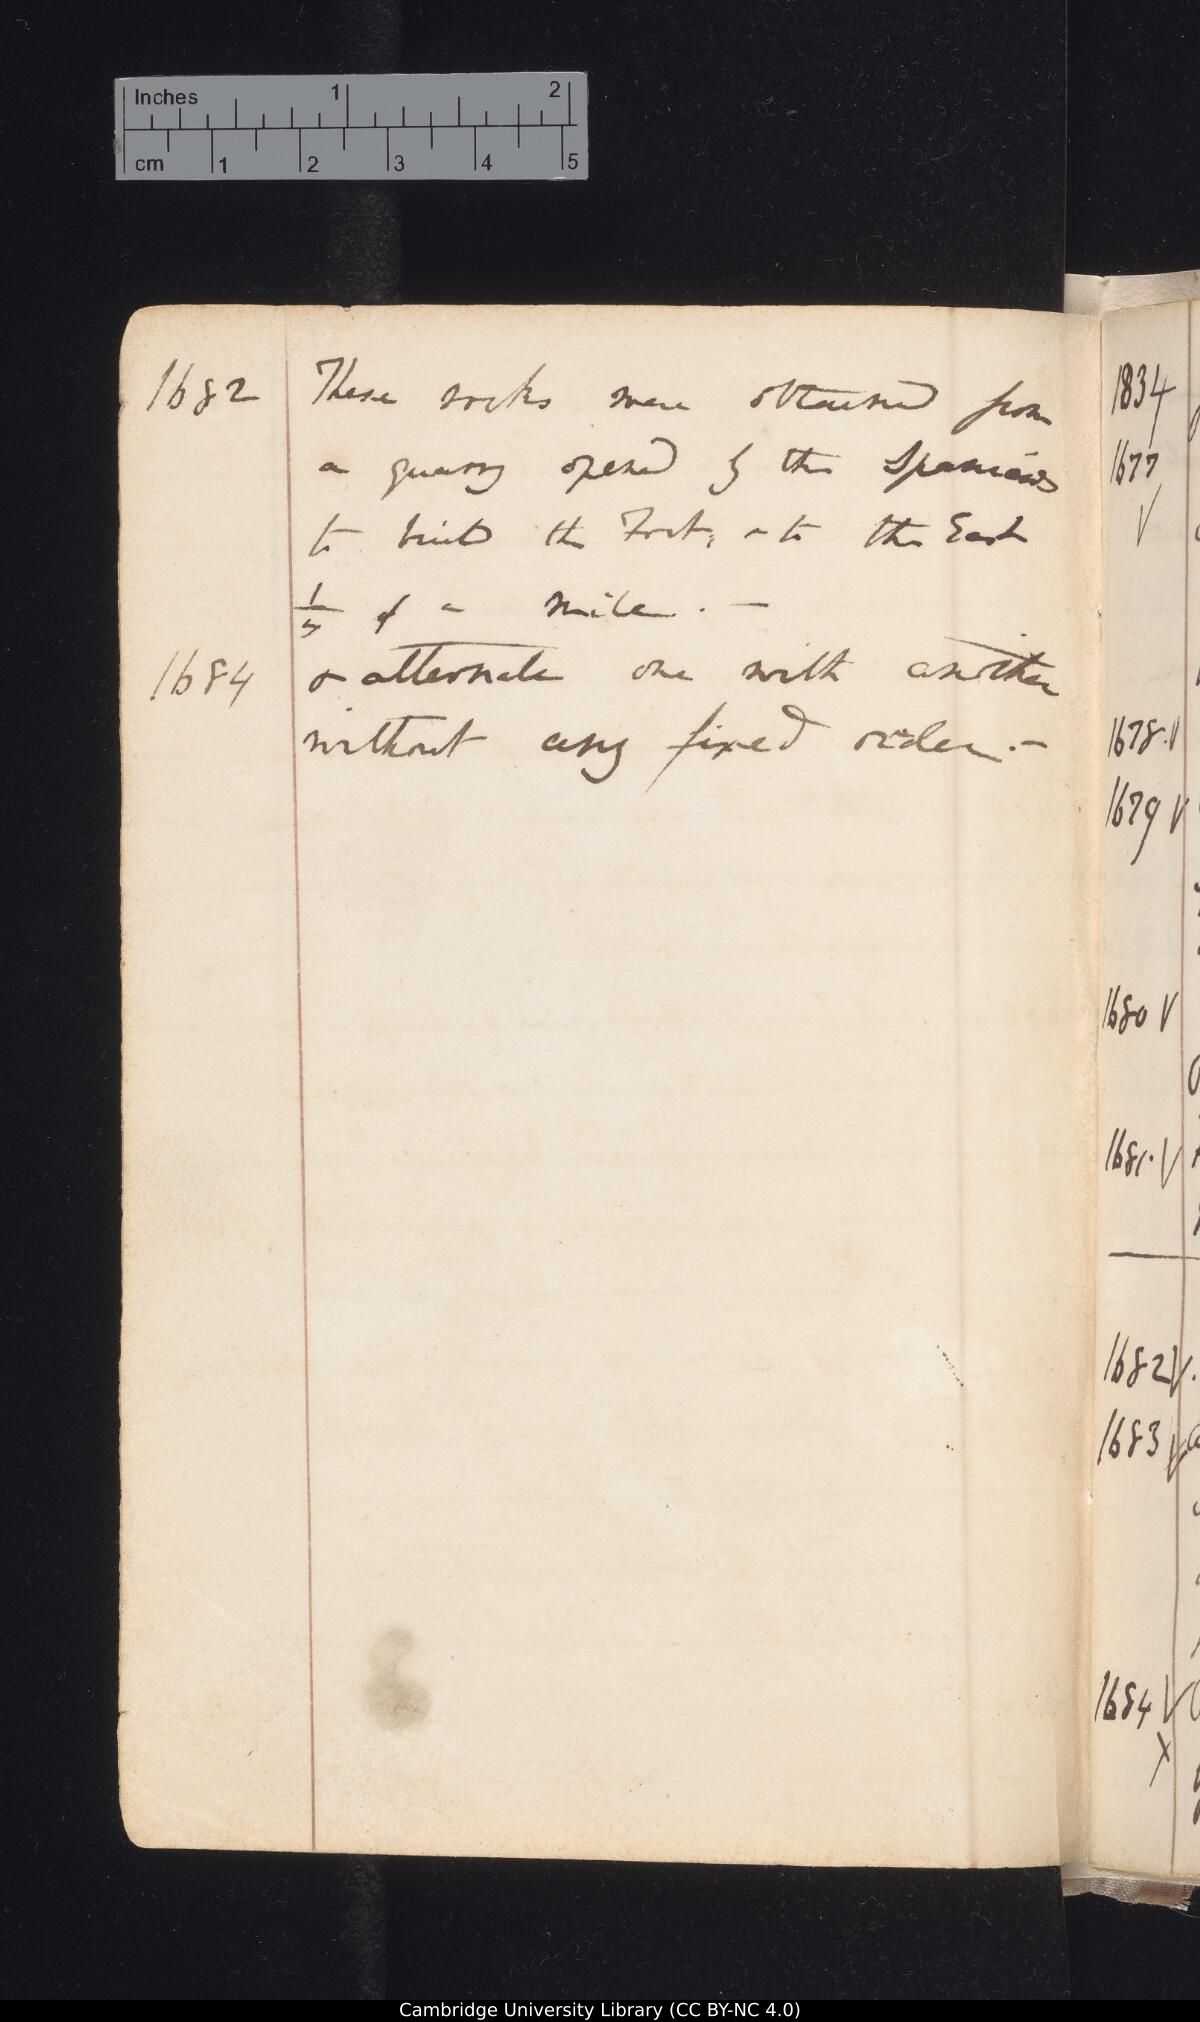 Inches 1 2
cm 1 2 3 4 5
1682 These rocks were obtained from
a quarry opened by the Spaniards
to build the Fort, to the East
of a mile. —
1684 & alternate one with another
without any fixed order. —
1834
1677
V
1678. V
1679 V
1680 V
1681. V
1682 V.
1683 V
1684 V
X
Cambridge University Library (CC BY-NC 4.0)